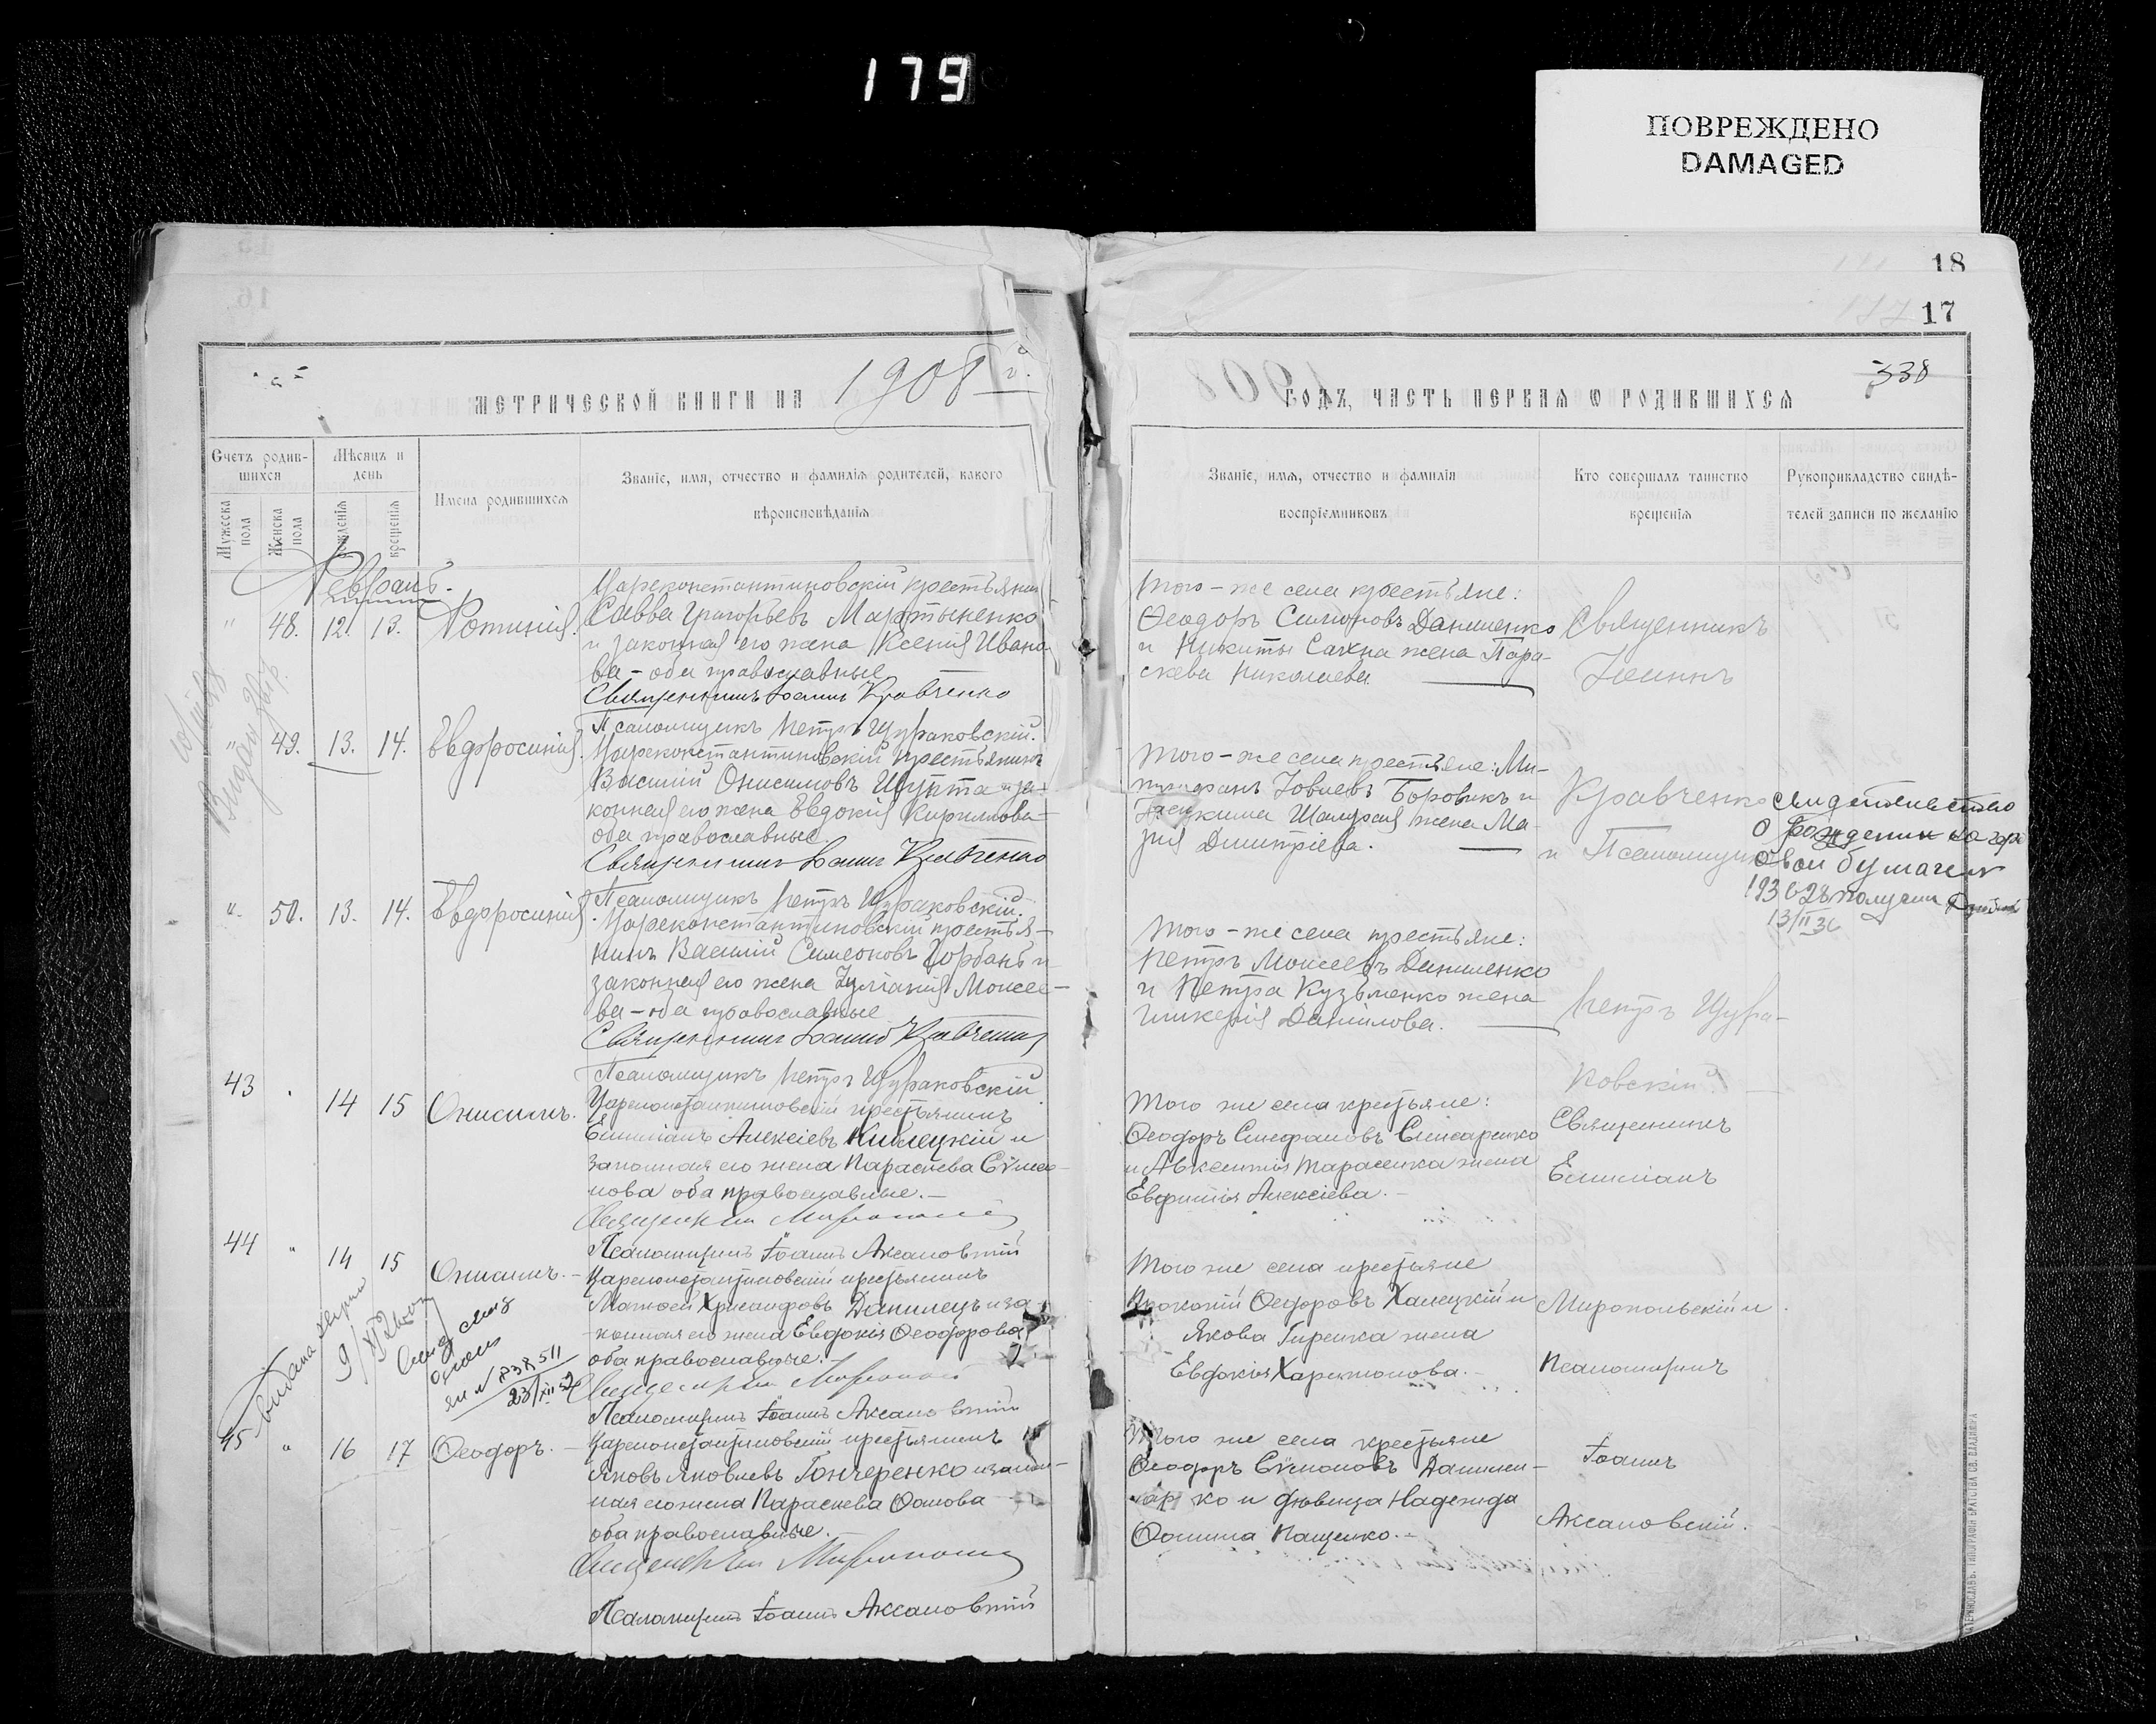 179
ПОВРЕЖДЕНО
DAMAGED
18
17
338
МЕТРИЧЕСКОЙ КНИГИ НА 1908 г.
ГОДЪ, ЧАСТЬ ПЕРВАЯ Ѡ РОДИВШИХСЯ
Счетъ родив-
шихся
Мѣсяцъ и
день
Мужеска
пола
Женска
пола
рожденія
крещенія
Имена родившихся
Званіе, имя, отчество и фамилія родителей, какого
вѣроисповѣданія
Званіе, имя, отчество и фамилія
воспріемниковъ
Кто совершалъ таинство
крещенія
Рукоприкладство свидѣ-
телей записи по желанію
Февраль.
" 48. 12. 13. Фотинія.
Цареконстантиновскій крестьянин
Савва Григорьевъ Мартыненко
и законная его жена Ксенія Ивано
ва - оба православные
Священникъ Іоаннъ Кравченко
Псаломщикъ Петръ Щураковскій.
Того-же села крестьяне:
Ѳеодоръ Симоновъ Даниленко
и Никиты Сахна жена Пара-
скева Николаева.
Священникъ
Іоаннъ
" 49. 13. 14. Евдросинія.
Цареконстантиновскій крестьянинъ
Василій Онисимовъ Шупта и за-
конная его жена Евдокія Кириллова-
оба православные
Священникъ Іоаннъ Кравченко
Псаломщикъ Петръ Щураковскій.
Того-же села крестьяне: Ми-
трофанъ Іовлевъ Боровикъ и
жена Ма-
рія Димитріева.
Кравченко
и Псаломщикъ
свидетельство
о рождении на гер
бовой бумаге №
193628 получил
13/II 36
" 50. 13. 14. Евдросинія
Цареконстантиновскій крестья-
нинъ Василій Симеоновъ Горбань и
законная его жена Іуліанія Моисее-
ва - оба православные
Священникъ Іоаннъ Кравченко
Псаломщикъ Петръ Щураковскій
Того-же села крестьяне:
Петръ Моисеевъ Даниленко
и Петра Кузьменко жена
Гликерія Данилова.
Петръ Щура-
ковскій
43 " 14 15 Онисимъ.
Цареконстантиновскій крестьянинъ
Емиліанъ Алексіевъ Килецкій и
законная его жена Параскева Сѵмео-
нова оба православные.-
Священникъ
Псаломщикъ Іоаннъ Аксановскій
Того же села крестьяне:
Ѳеодоръ Стефановъ Слисаренко
и Авксентія Тарасенка жена
Евфимія Алексіева.-
Священникъ
Емиліанъ
44 " 14 15 Онисимъ.-
Цареконстантиновскій крестьянинъ
Матѳей Хрисанфовъ Данилецъ и за-
конная его жена Евдокія Ѳеодорова
оба православные.-
Псаломщикъ Іоаннъ Аксановскій
Того же села крестьяне
Прокопій Ѳеодоровъ Халецкій и
Якова Гиренка жена
Евдокія Харитонова.-
Миропольскій и
Псаломщикъ
45 " 16 17 Ѳеодоръ.-
Цареконстантиновскій крестьянинъ
Яковъ Яковлевъ Гончеренко и закон-
ная его жена Параскева Ѳомова
оба православные.
Псаломщикъ Іоаннъ Аксановскій
Того же села крестьяне
Ѳеодоръ Сѵмоновъ Данилен-
ко и дѣвица Надежда
Ѳомина Пащенко.-
Іоаннъ
Аксановскій.